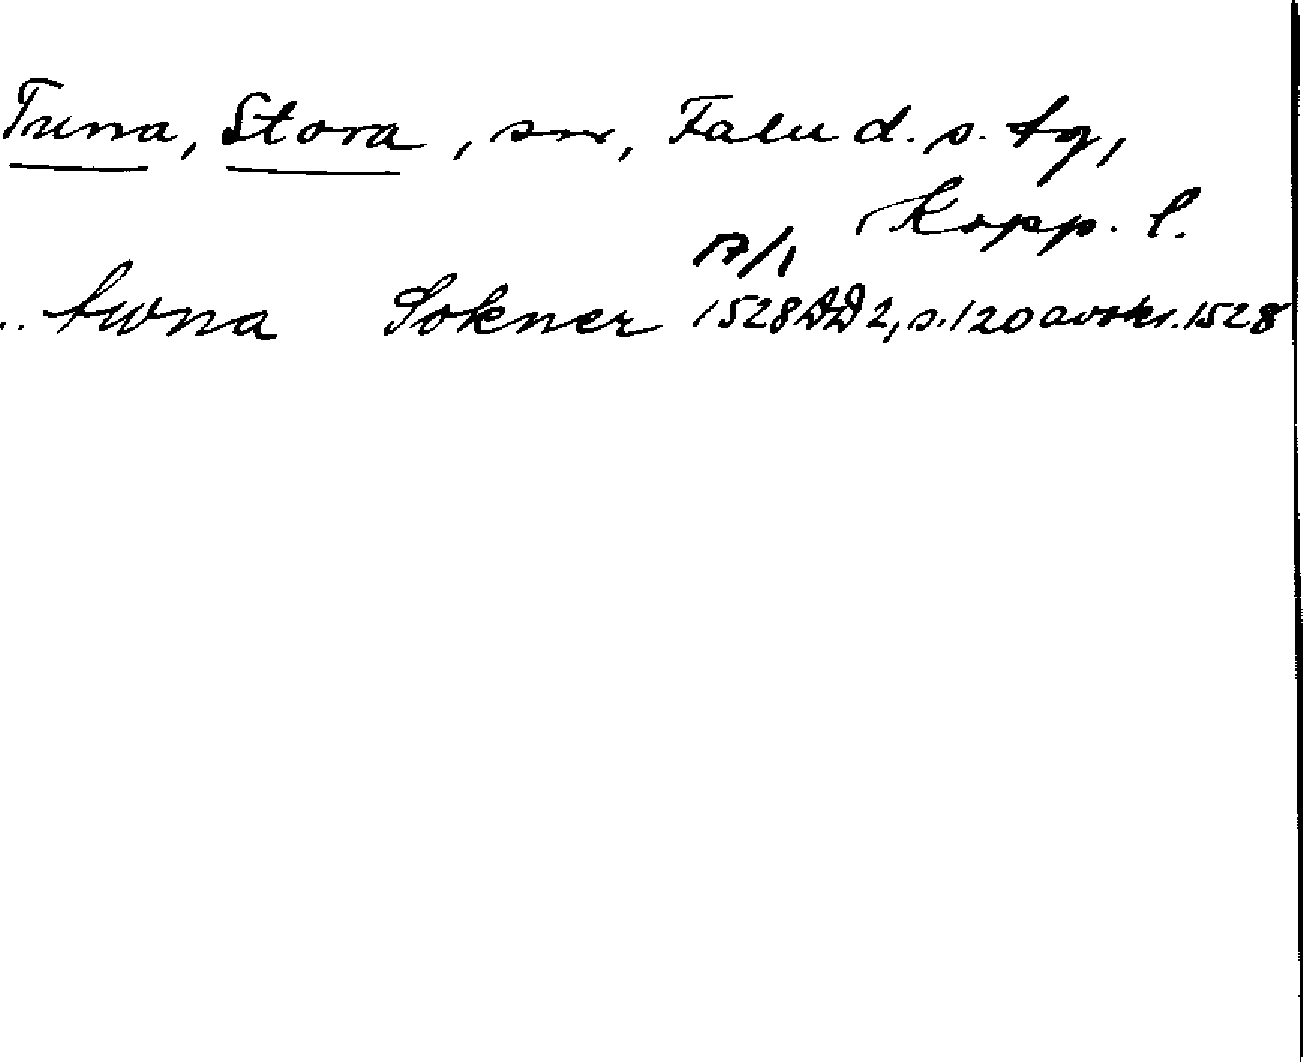 Tuna, Stora, sn, Falu d. s. tg,
Kopp. l.
17/1
.. twna Sokner 1528 DD2, s. 120 avskr. 1528